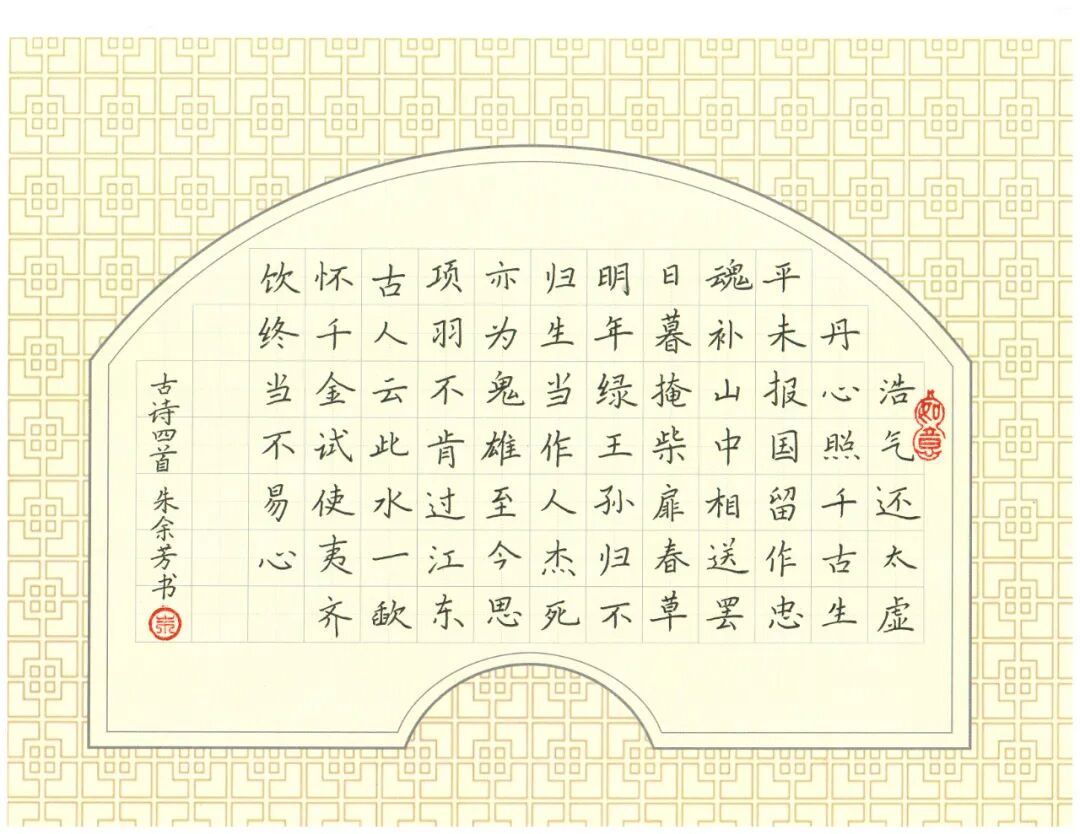 如意
浩气还太虚
丹心照千古生
平未报国留作忠
魂补山中相送罢
日暮掩柴扉春草
明年绿王孙归不
归生当作人杰死
亦为鬼雄至今思
项羽不肯过江东
古人云此水一歃
怀千金试使夷齐
饮终当不易心
古诗四首 朱余芳书